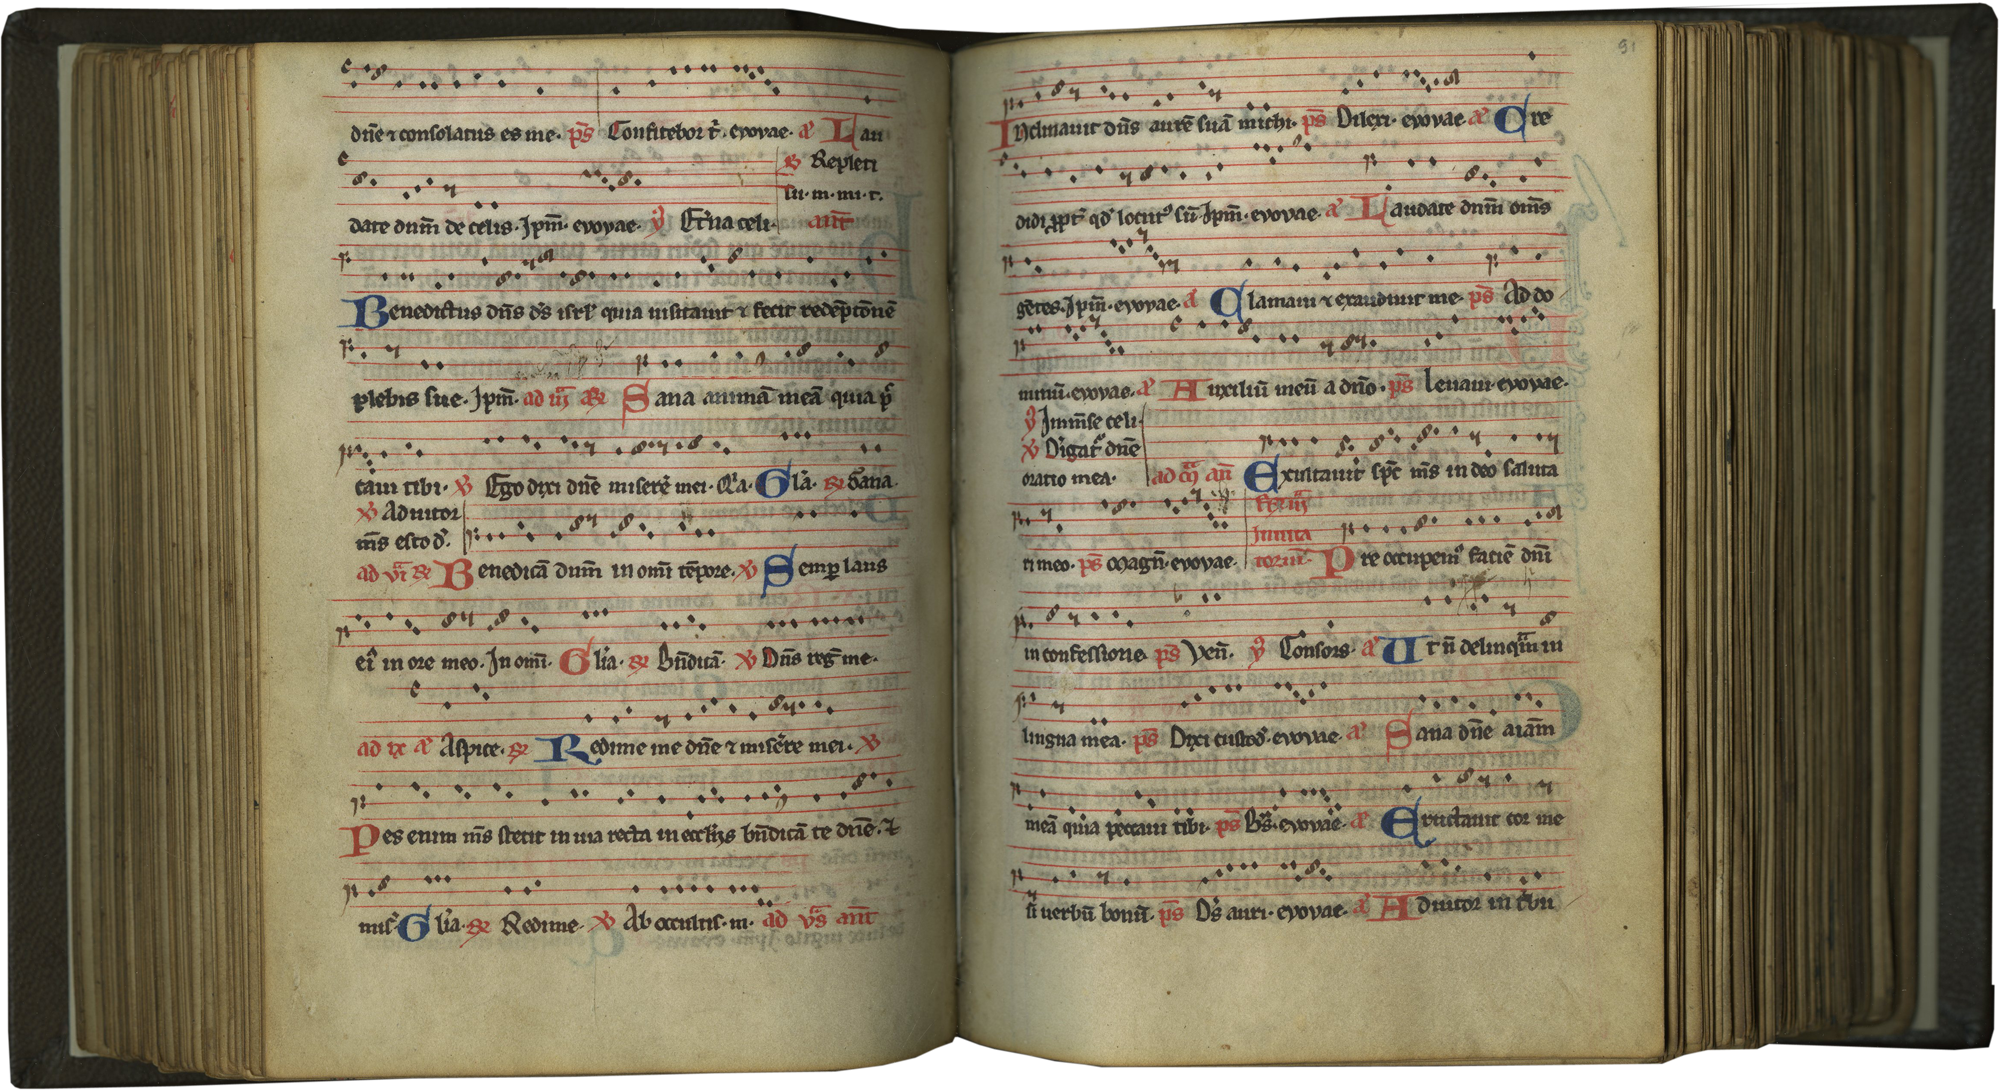 dn̄e ⁊ consolatus es me. ps̄ Confitebor t̄. evovae. a᷎ Lau
℟ Repleti
su. m. mi. t.
date dnm̄ de celis. Ipm̄. evovae. ℣ Et̄na celi. ant̄
Benedictus dn̄s ds̄ isrl̄ quia uisitauit ⁊ fecit redēptōnē
plebis sue. Ipm̄. ad Sana animā meā quia p̄
caui tibi. ℣ Ego dixi dn̄e miserē mei. Glā. Sana.
℣ Adiutor
m̄s esto d̄.
Benedicā dnm̄ in omī tēpore. ℣ Semp̱ laus
ei᷎ in ore meo. In omī. Glīa. Bn̄dicā. ℣ Dn̄s reḡ me.
ad ix a᷎ Aspice. Redime me dn̄e ⁊ misēre mei. ℣
Pes enim m̄s stetit in uia recta in eccl̄iis bn̄dicā te dn̄e. ⁊
mis᷎. Glīa. Redime. ℣ Ab occultis. m. ad vs̄ ant̄
91
Inclinauit dn̄s aurē suā michi. ps̄ Dilexi. evovae. a᷎ Cre
didi ꝓpt̄ qd̄ locut᷒ sū. Ipm̄. evovae. a᷎ Laudate dnm̄ om̄s
gētes. Ipm̄. evovae. a᷎ Clamaui ⁊ exaudiuit me. ps̄ Ad do
minū. evovae. a᷎ Auxiliū meū a dn̄o. ps̄ Leuaui. evovae.
℣ Inmēse celi.
℣ Dīgat᷎ dn̄e
oratio mea. ad an̄ Exultauit sp̄c m̄s in deo saluta
ri meo. ps̄ Magn̄. evovae. Inuita
torīū. Pre occupem᷒ faciē dn̄i
in confessione. ps̄ Ven̄. Consors. a᷎ Ut n̄ delinqm̄ in
lingua mea. ps̄ Dixi custod̄. evovae. a᷎ Sana dn̄e aīam̄
meā quia peccaui tibi. ps̄ Bs̄. evovae. a᷎ Eructauit cor me
ū uerbū bonū. ps̄ Ds̄ auri. evovae. a᷎ Adiutor in t̄bu